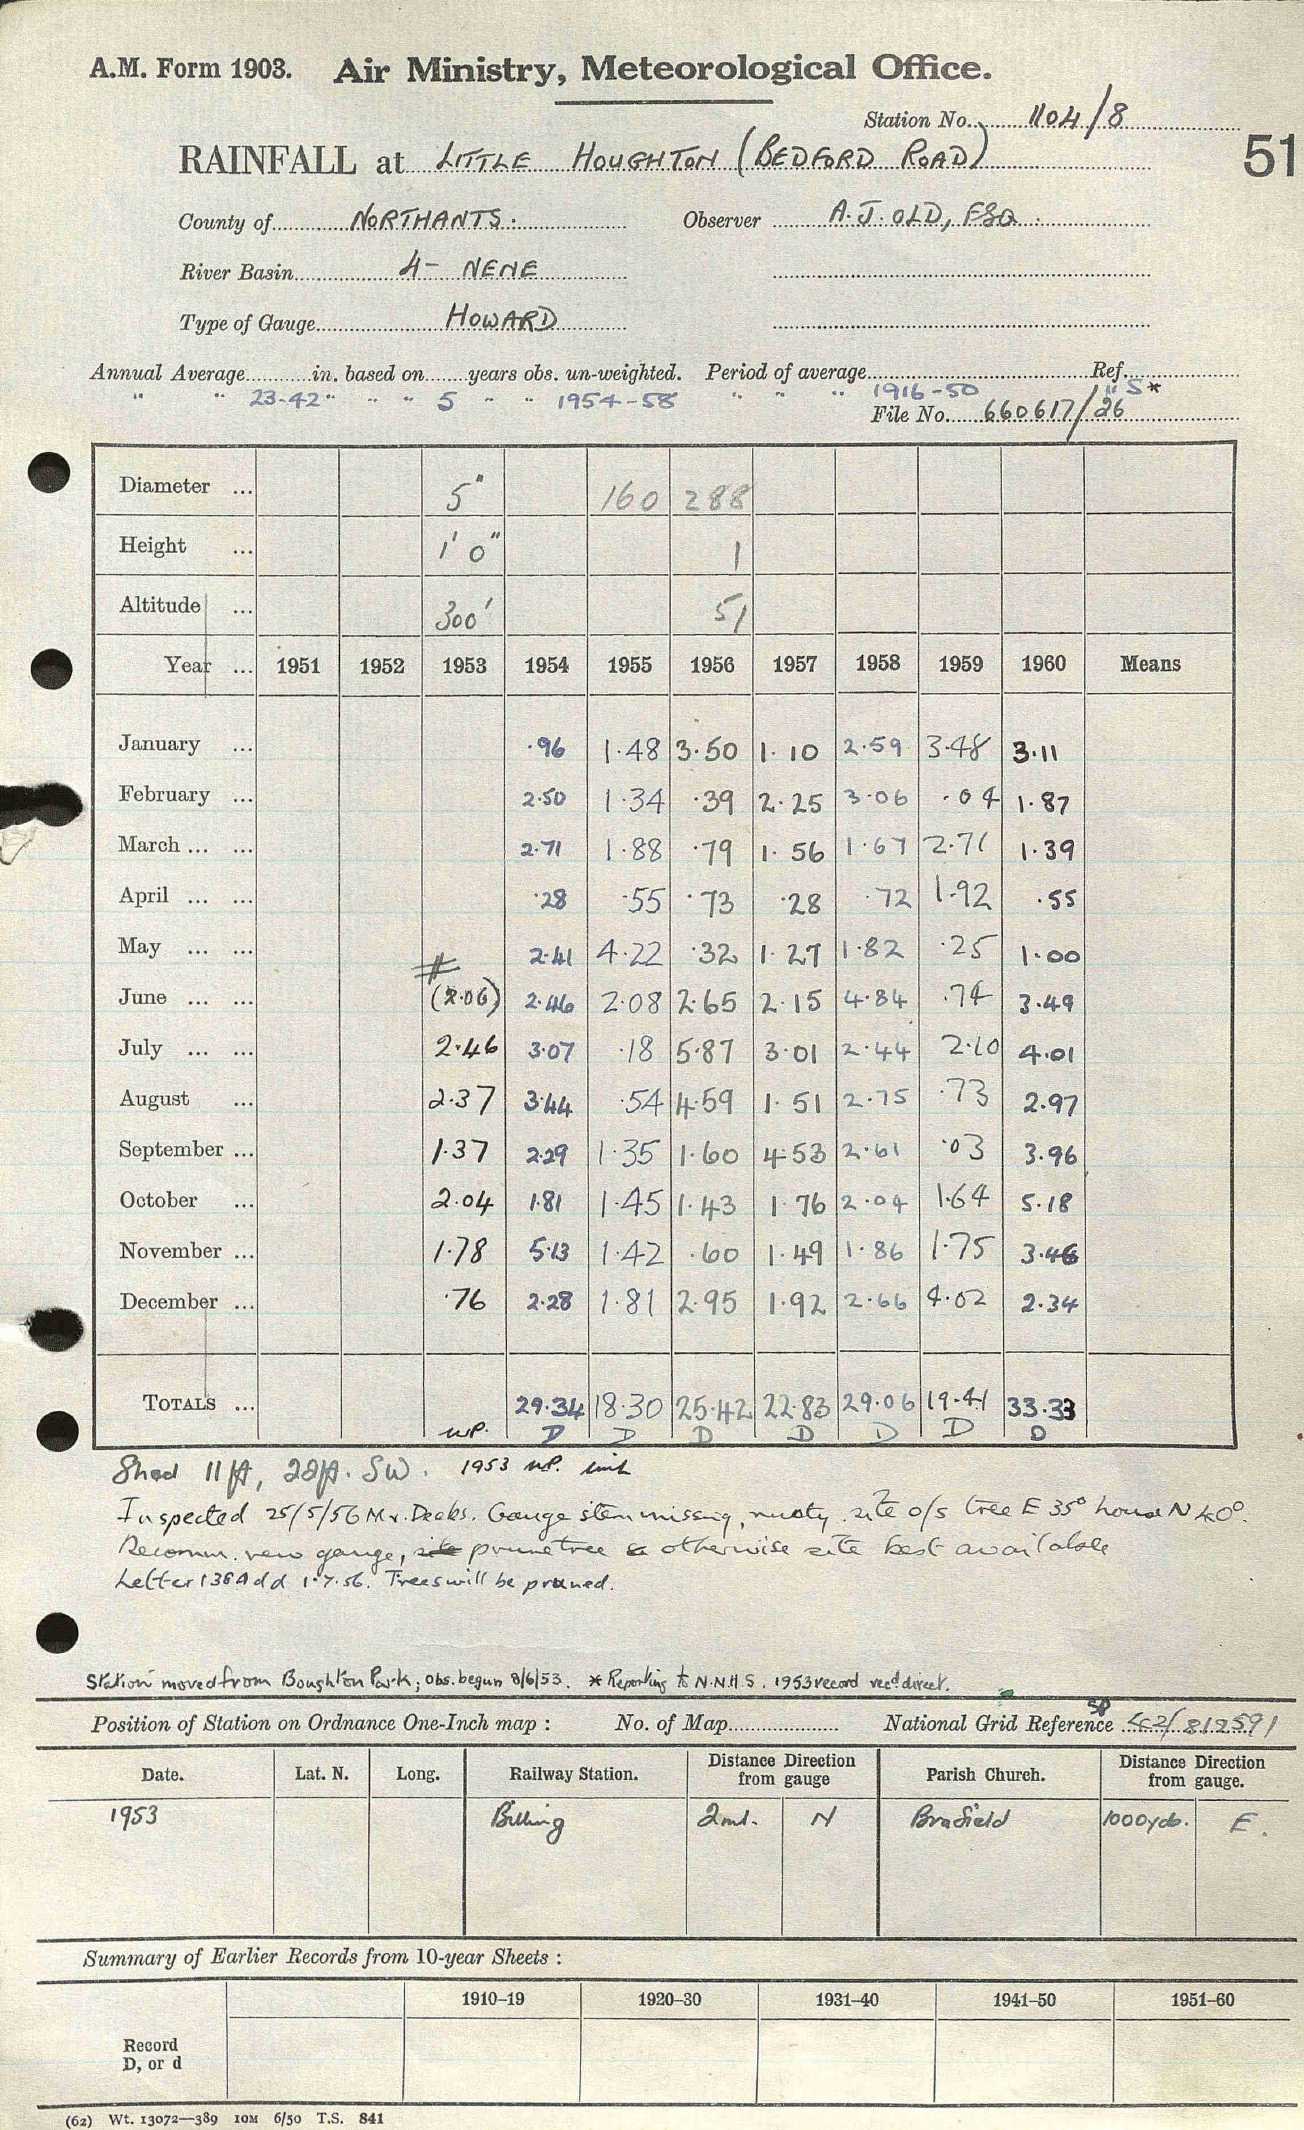 A.M. Form 1903. Air Ministry, Meteorological Office.
Station No. 1104/8
51
RAINFALL at LITTLE HOUGHTON (BEDFORD ROAD)
County of NORTHANTS. Observer A.J. OLD, ESQ.
River Basin 4- NENE
Type of Gauge HOWARD
Annual Average in. based on years obs. un-weighted. Period of average Ref.
" " 23.42 " " " 5 " " 1954-58 " " " 1916-50 " S*
File No. 660617/26
Diameter ... 5" 160 288
Height ... 1' 0" 1
Altitude ... 300' 51
Year ... 1951 1952 1953 1954 1955 1956 1957 1958 1959 1960 Means
January ... .96 1.48 3.50 1.10 2.59 3.48 3.11
February ... 2.50 1.34 .39 2.25 3.06 .04 1.87
March ... ... 2.71 1.88 .79 1.56 1.67 2.71 1.39
April ... ... .28 .55 .73 .28 .72 1.92 .55
May ... ... 2.41 4.22 .32 1.27 1.82 .25 1.00
#
June ... ... (2.06) 2.46 2.08 2.65 2.15 4.84 .74 3.49
July ... ... 2.46 3.07 .18 5.87 3.01 2.44 2.10 4.01
August ... 2.37 3.44 .54 4.59 1.51 2.75 .73 2.97
September ... 1.37 2.29 1.35 1.60 4.53 2.61 .03 3.96
October ... 2.04 1.81 1.45 1.43 1.76 2.04 1.64 5.18
November ... 1.78 5.13 1.42 .60 1.49 1.86 1.75 3.46
December ... .76 2.28 1.81 2.95 1.92 2.66 4.02 2.34
TOTALS ... 29.34 18.30 25.42 22.83 29.06 19.41 33.33
N.P. D D D D D D D
Shed 11ft, 28ft. SW. 1953 N.P.
Inspected 25/5/56 Mr. Deeks. Gauge stem missing, rusty. site o/s tree E 35° house N 40°.
Recomm. new gauge, prune tree otherwise site best available
Letter 138A dd 1.7.56. Trees will be pruned.
Station moved from Boughton Park; obs. begun 8/6/53. * Reporting to N.N.H.S. 1953 record recd direct.
Position of Station on Ordnance One-Inch map : No. of Map National Grid Reference SP 42/812591
Date. Lat. N. Long. Railway Station. Distance Direction from gauge Parish Church. Distance Direction from gauge.
1953 Billing 2ml. N Brafield 1000yds. E.
Summary of Earlier Records from 10-year Sheets :
1910-19 1920-30 1931-40 1941-50 1951-60
Record
D, or d
(62) Wt. 13072—389 10M 6/50 T.S. 841